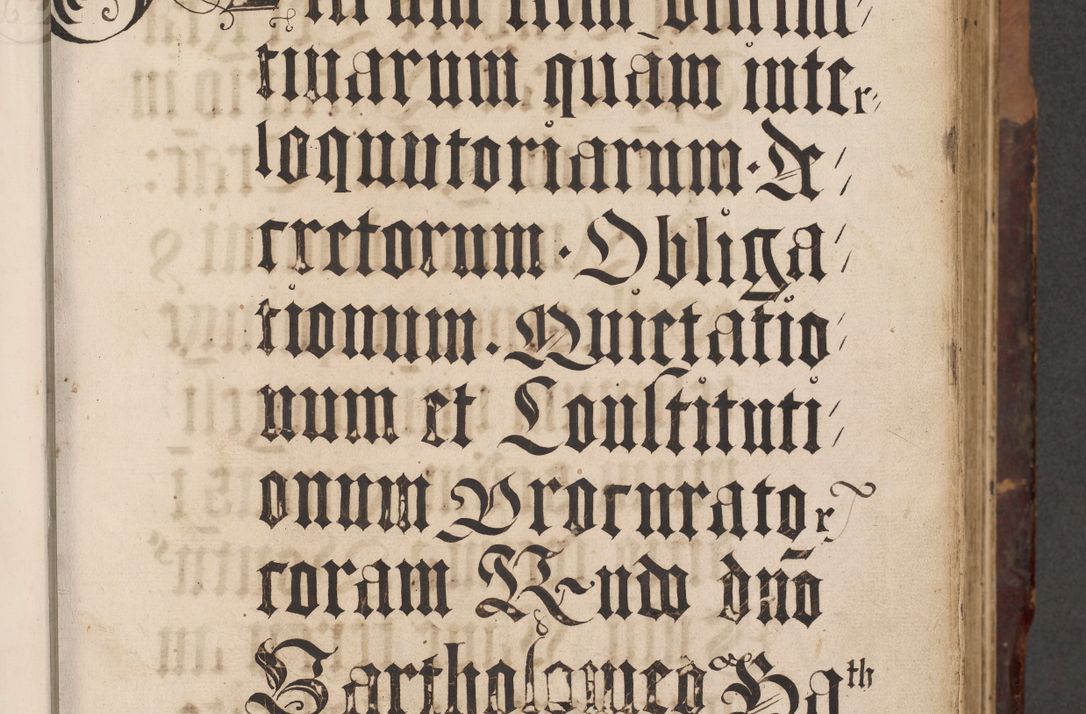 rerum tum diffini/
tiuarum quàm inter/
loquutoriarum. De/
cretorum. Obliga/
tionum. Quietatio/
num et Constituti/
onum Procurator
coram Rndo dnō
Bartholomeo Gath